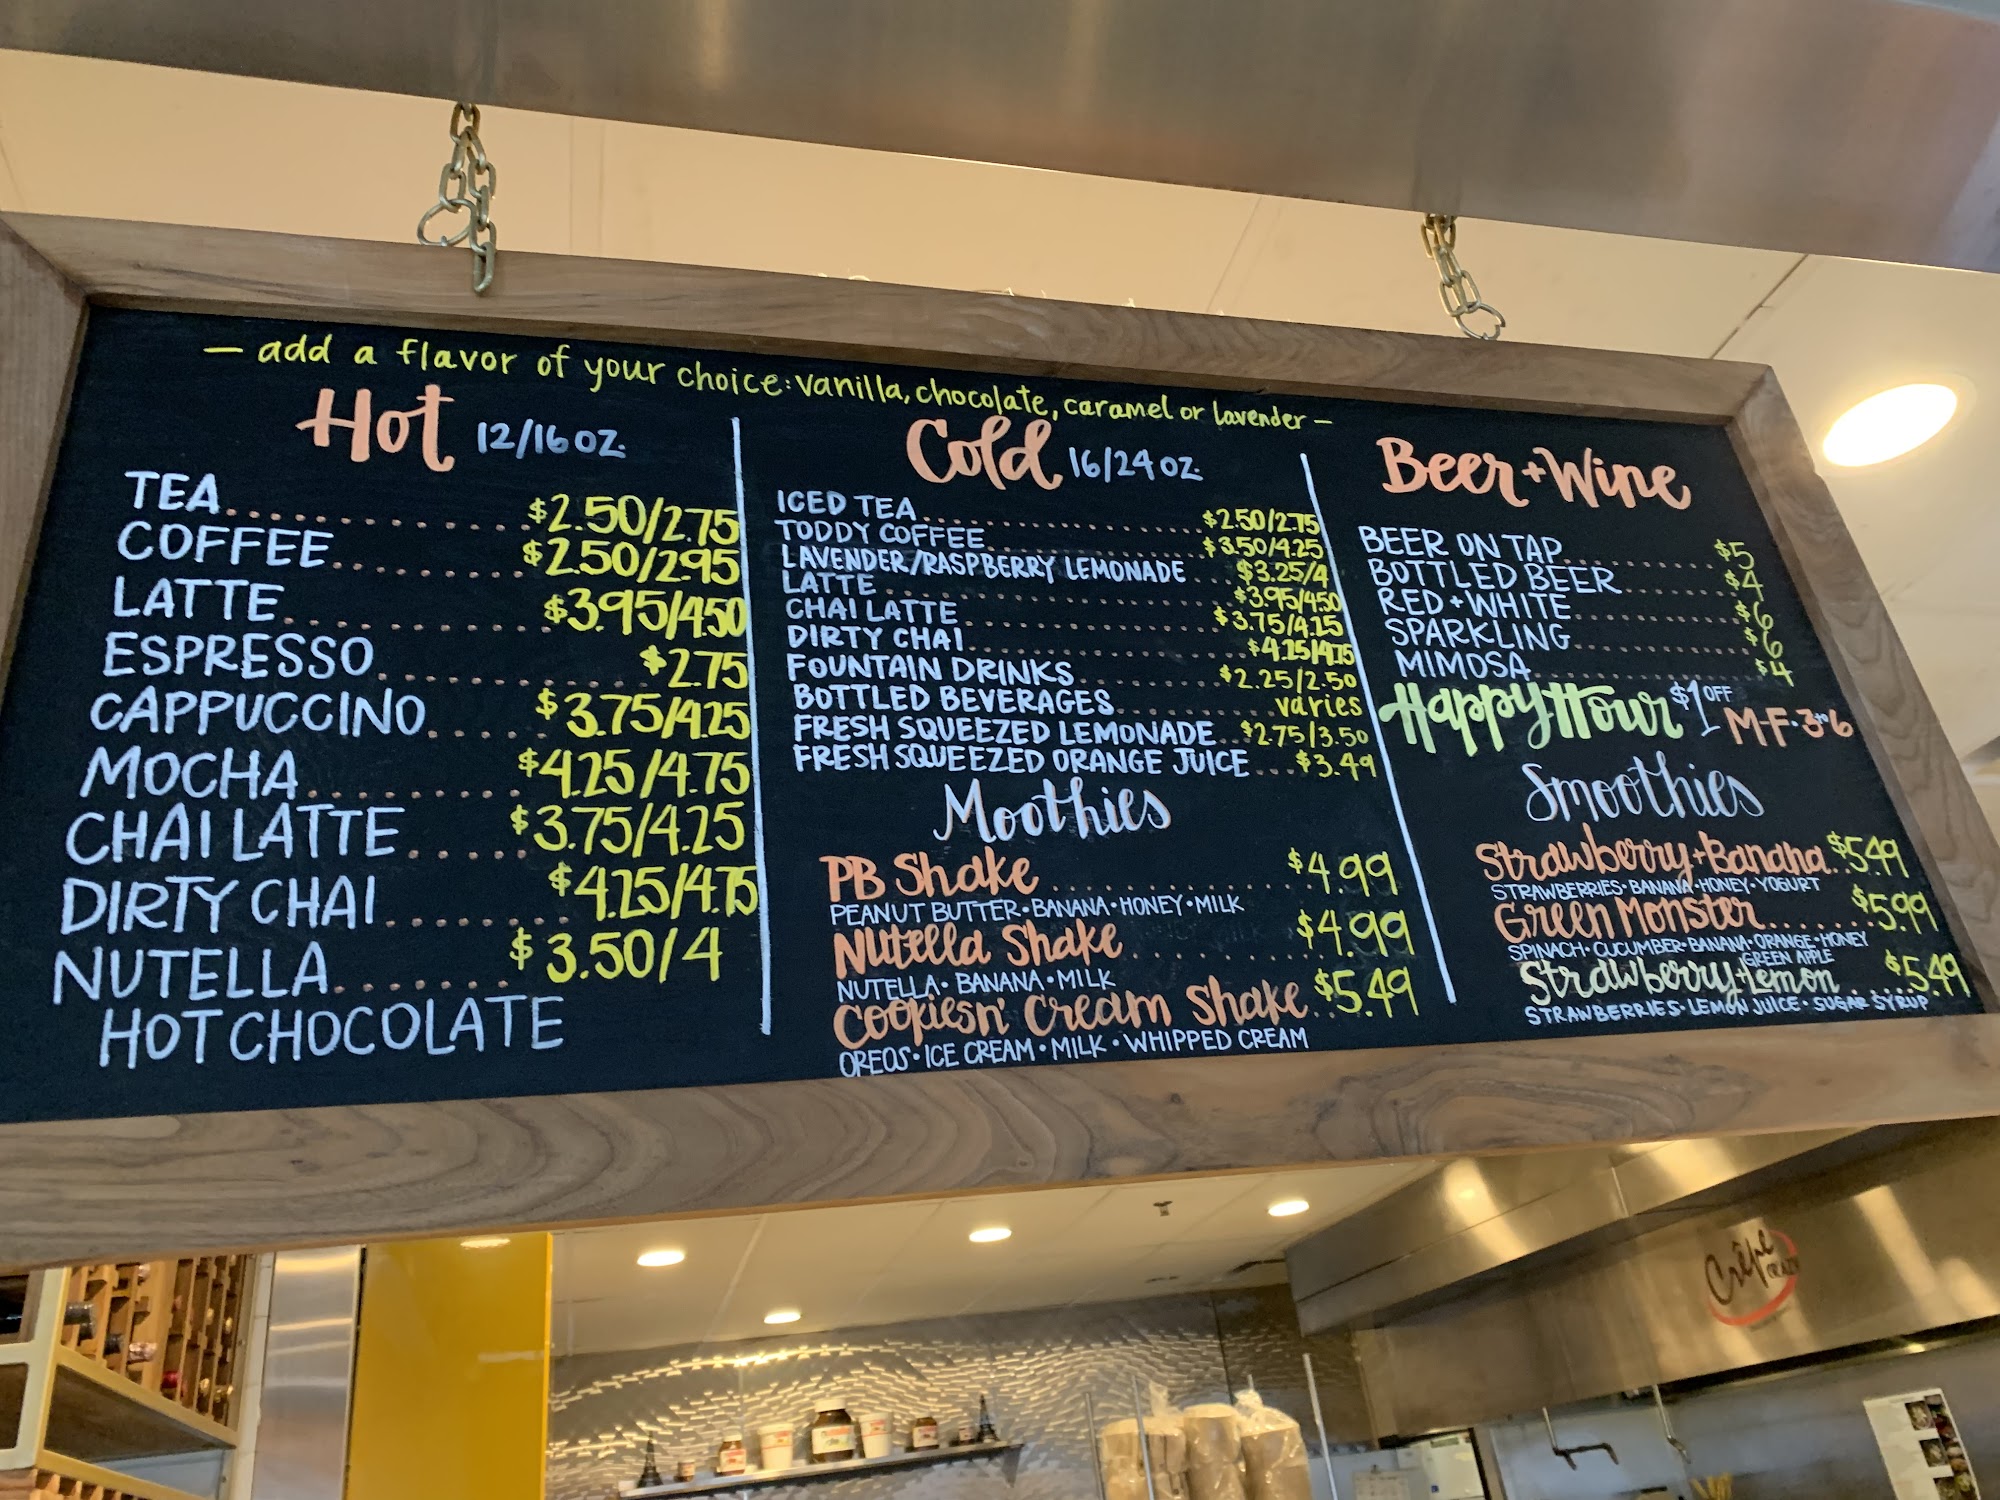 — add a flavor of your choice: vanilla, chocolate, caramel or lavender —
Hot 12/16 OZ.
TEA $2.50/2.75
COFFEE $2.50/2.95
LATTE $3.95/4.50
ESPRESSO $2.75
CAPPUCCINO $3.75/4.25
MOCHA $4.25/4.75
CHAI LATTE $3.75/4.25
DIRTY CHAI $4.25/4.75
NUTELLA $3.50/4
HOT CHOCOLATE
Cold 16/24 OZ.
ICED TEA $2.50/2.75
TODDY COFFEE $3.50/4.25
LAVENDER/RASPBERRY LEMONADE $3.25/4
LATTE $3.95/4.50
CHAI LATTE $3.75/4.25
DIRTY CHAI $4.25/4.75
FOUNTAIN DRINKS $2.25/2.50
BOTTLED BEVERAGES varies
FRESH SQUEEZED LEMONADE $2.75/3.50
FRESH SQUEEZED ORANGE JUICE $3.49
Moothies
PB Shake $4.99
PEANUT BUTTER • BANANA • HONEY • MILK
Nutella Shake $4.99
NUTELLA • BANANA • MILK
Cookiesn' Cream Shake $5.49
OREOS • ICE CREAM • MILK • WHIPPED CREAM
Beer + Wine
BEER ON TAP $5
BOTTLED BEER $4
RED + WHITE $6
SPARKLING $6
MIMOSA $4
Happy Hour $1 OFF M-F • 3 to 6
Smoothies
Strawberry + Banana $5.49
STRAWBERRIES • BANANA • HONEY • YOGURT
Green Monster $5.99
SPINACH • CUCUMBER • BANANA • ORANGE • HONEY
GREEN APPLE
Strawberry + Lemon $5.49
STRAWBERRIES • LEMON JUICE • SUGAR SYRUP
Crêpe
CRAZY